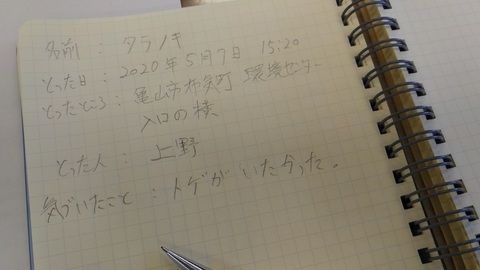 名前 : タラノキ
とった日 : 2020年5月7日 15:20
とったところ : 亀山市布気町 環境センター
入口の横
とった人 : 上野
気づいたこと : トゲがいたかった。